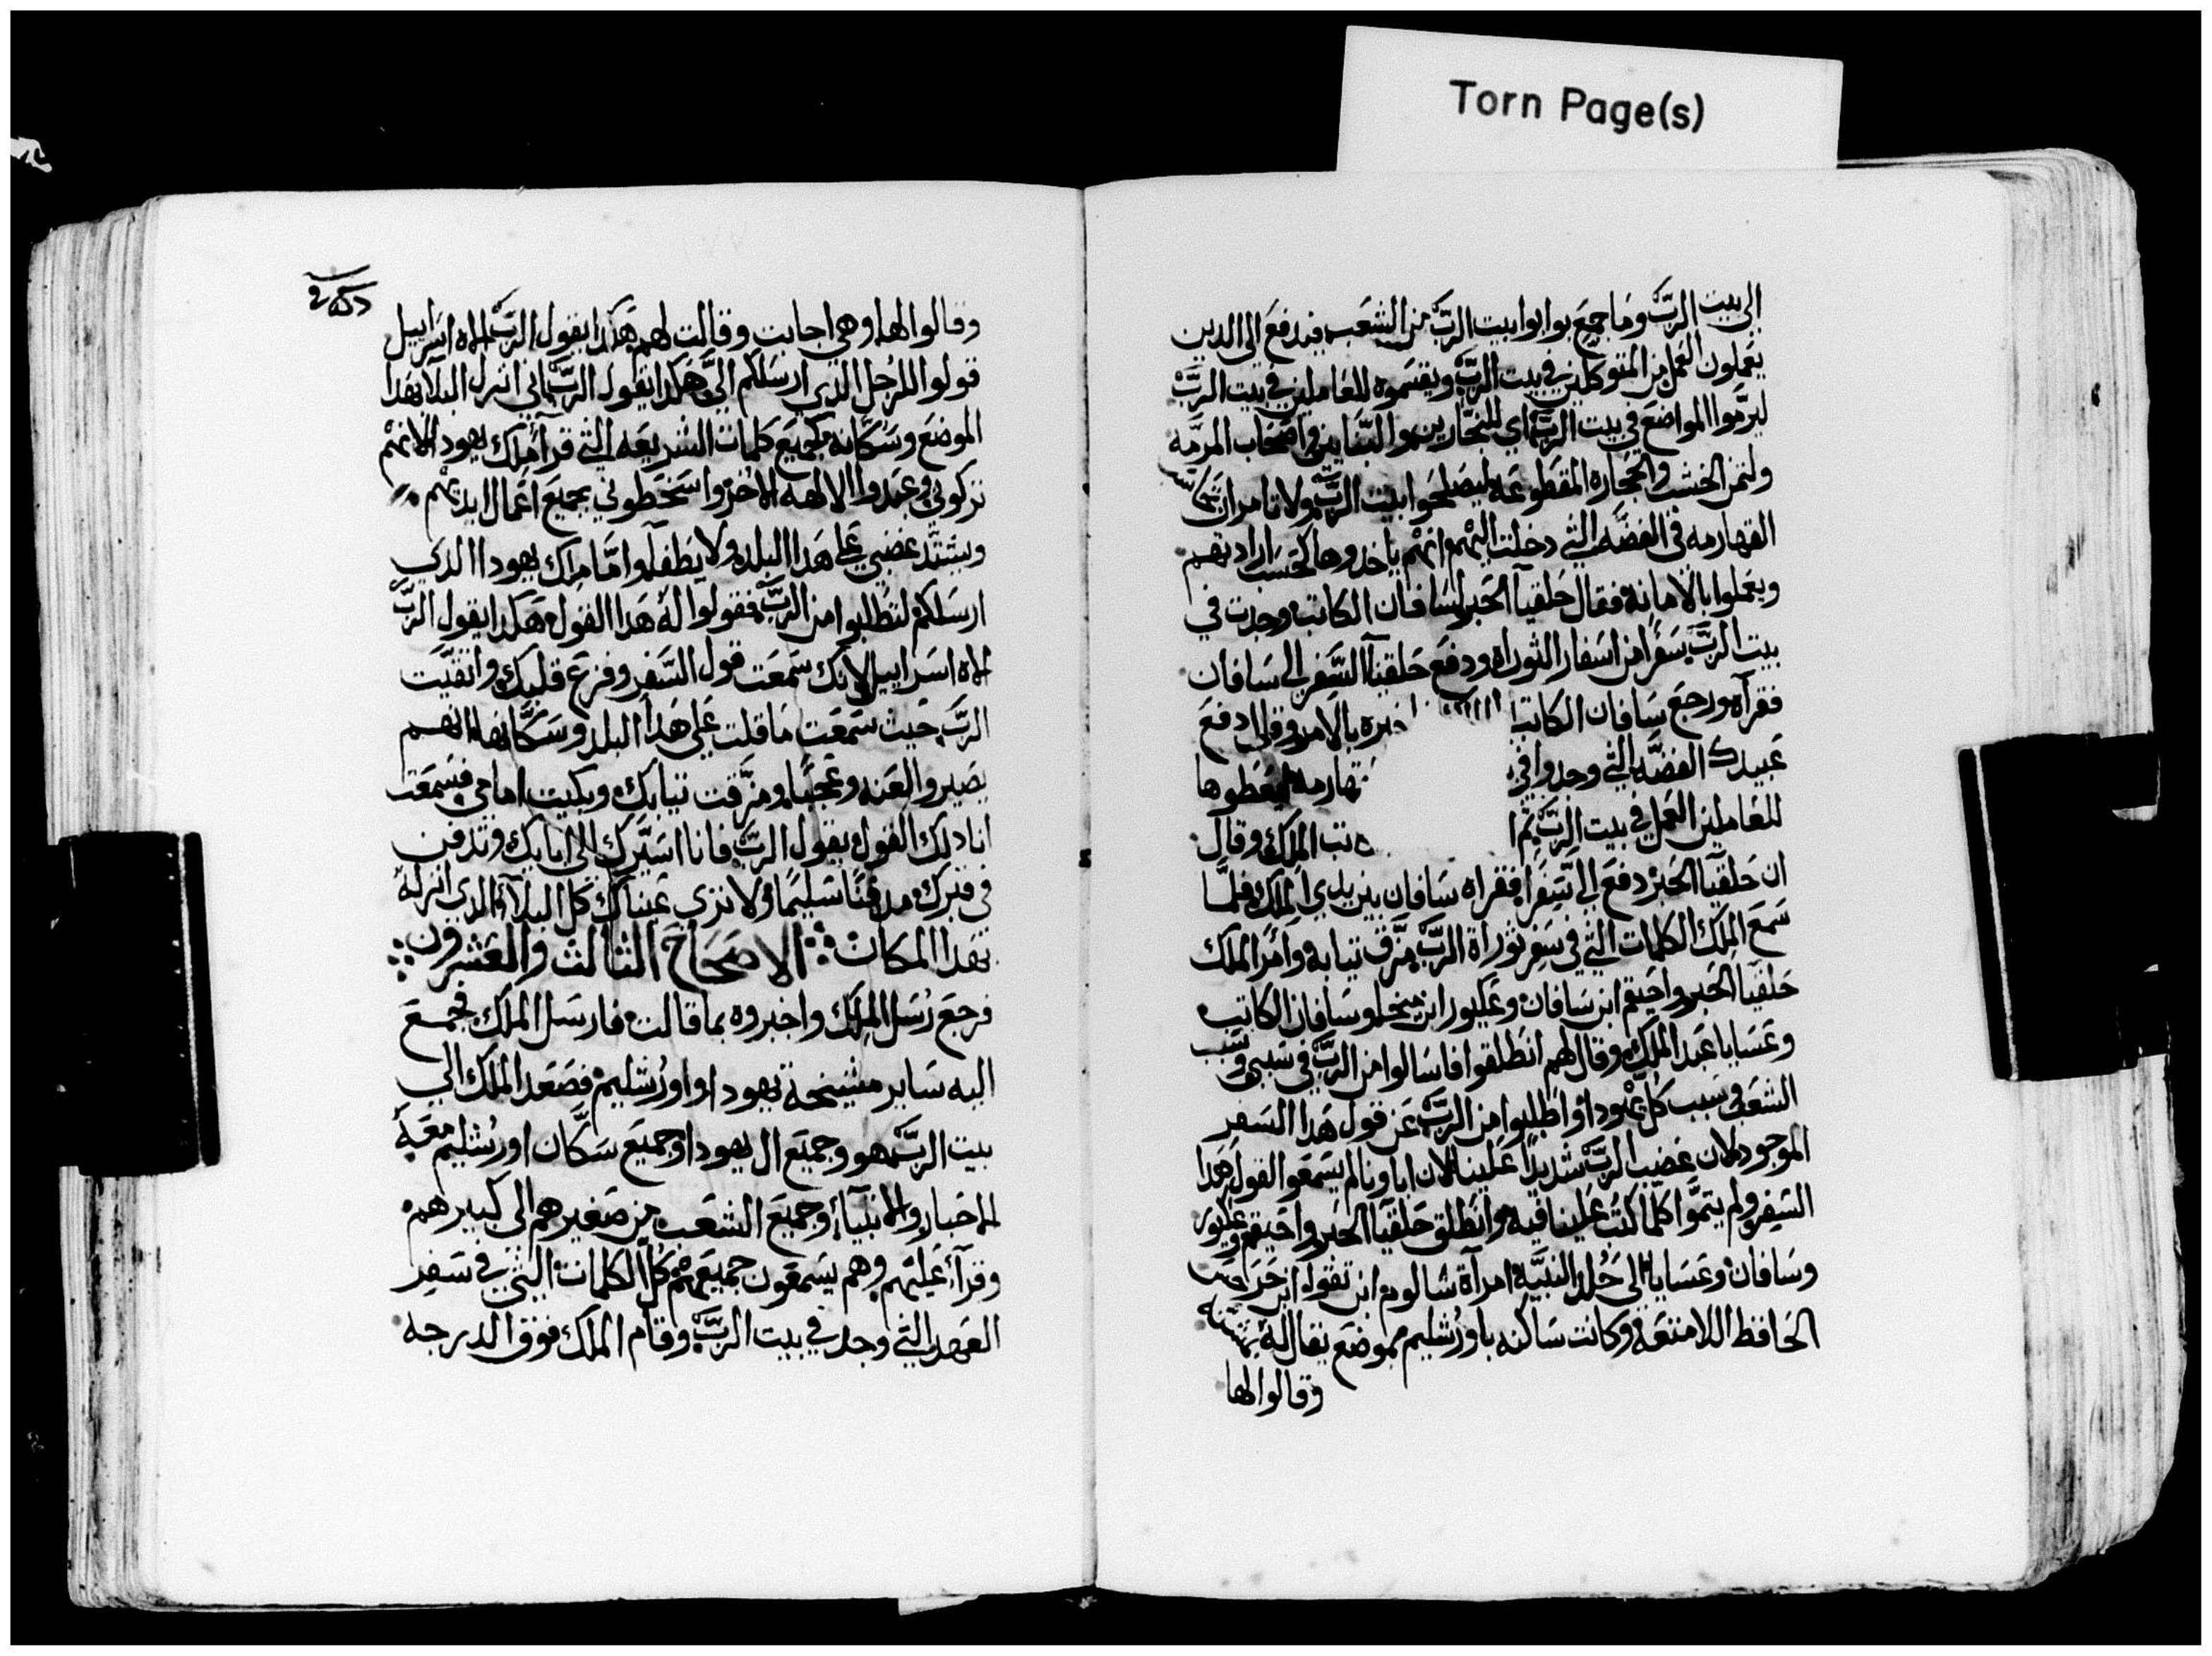 Torn Page(s)
الى بيت الرب وما جمع بوابوا بيت الرب من الشعب فيدفع الى الدين
يعملون العمل من المتوكلين في بيت الرب ويقسموه للعاملين في بيت الرب
ليرمّوا المواضع في بيت الرب اي للنجارين والبنايين واصحاب المرمه
ولثمن الخشب والحجاره المقطوعه ليصلحوا بيت الرب ولا تامر ان
القهارمه في الفضه التي دخلت اليهم انهم ياخدوها كحسب ارادتهم
ويعملوا بالامانة فقال حلقيا الحبر لسافان الكاتب وجدت في
بيت الرب سفرا من اسفار التوراه ودفع حلقيا السفر الى سافان
فقرآه ورجع سافان الكاتب خبره بالامر وقال دفع
عبيدك الفضه التي وجدوا في تهارمه ليعطوها
للعاملين العمل في بيت الرب ثم ا تب الملك وقال
ان حلقيا الحبر دفع الى سفرا فقراه سافان بين يدي الملك فلما
سمع الملك الكلمات التي في سفر توراة الرب مزق تيابه وامر الملك
حلقيا الحبر واحيقم ابن سافان وعكبور ابن ميخا وسافان الكاتب
وعسايا عبد الملك وقال لهم انطلقوا فاسالوا من الرب في سببي وسبب
الشعب وفي سبب كل يهودا واطلبوا من الرب عن قول هدا السفر
الموجود لان غضب الرب شديدا علينا لان اباونا لم يسمعوا القول هدا
السفر ولم يتموا كلما كتب علينا فيه وانطلق حلقيا الحبر واحيقم وعكبور
وسافان وعسايا الى حلدا النبيه امرآة شالوم ابن تقوه ابن
الحافظ اللامتعه وكانت ساكنه باورشليم بموضع يقال له
وقالوا لها
وقالوا لها وهي اجابت وقالت لهم هكدا يقول الرب الاه اسراييل
قولوا للرجل الدي ارسلكم الي هكدا يقول الرب اني انزل البلا بهدا
الموضع وسكانه بجميع كلمات الشريعه التي قرا ملك يهودا لانهم
تركوني وعبدوا الالهه الاخر واسخطوني بجميع اعمال ايديهم
ويشتد غضبي على هدا البلد ولا يطفا واما ملك يهودا الدي
ارسلكم لتطلبوا من الرب فقولوا له هدا القول هكدا يقول الرب
الاه اسراييل لانك سمعت قول السفر وفزع قلبك واتقيت
الرب حيث سمعت ما قلت على هدا البلد وسكانها انهم
يصيروا لعنه وعجبا ومزقت تيابك وبكيت امامي فسمعت
انا دلك القول يقول الرب فانا اسيرك الى ابايك وتدفن
في قبرك مدفنا سليما ولا ترى عيناك كل البلاء الدي انزله
بهدا المكان الاصحاح الثالث والعشرون
فرجع رسل الملك واخبروه بما قالت فارسل الملك فجمع
اليه ساير مشيخة يهودا واورشليم فصعد الملك الى
بيت الرب هو وجميع ال يهودا وجميع سكان اورشليم معه
الاحبار والانبياء وجميع الشعب من صغيرهم الى كبيرهم
وقرآء عليهم وهم يسمعون جميعهم كل الكلمات التي في سفر
العهد التي وجد في بيت الرب وقام الملك فوق الدرجه